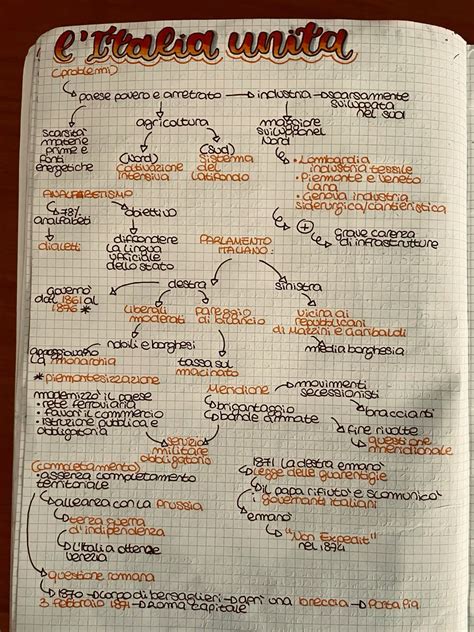 l'Italia unita
(problemi)
paese povero e arretrato → industria → scarsamente
sviluppata
nel sud
scarsità
materie
prime e
fonti
energetiche
agricoltura
(Nord)
coltivazione
intensiva
(Sud)
sistema
del
latifondo
maggiore
sviluppo nel
Nord
• Lombardia
industria tessile
• Piemonte e Veneto
lana
• Genova industria
siderurgica/cantieristica
+
grave carenza
di infrastrutture
ANALFABETISMO
78%
analfabeti
dialetti
obiettivo
diffondere
la lingua
ufficiale
dello stato
PARLAMENTO
ITALIANO:
destra
sinistra
governo
dal 1861 al
1876 *
liberali
moderati
pareggio
di bilancio
vicina ai
repubblicani
di Mazzini e Garibaldi
nobili e borghesi
media borghesia
appoggiavano
la monarchia
tassa sul
macinato
* piemontesizzazione
modernizzò il paese
• rete ferroviaria
• favorì il commercio
• istruzione pubblica e
obbligatoria
Meridione
movimenti
secessionisti
brigantaggio
bande armate
braccianti
fine rivolte
questione
meridionale
servizio
militare
obbligatorio
(completamento)
assenza completamento
territoriale
alleanza con la Prussia
terza guerra
d'indipendenza
L'Italia ottenne
Venezia
1871 la destra emanò
Legge delle guarentigie
il papa rifiutò e scomunicò
i governanti italiani
emanò
"Non Expedit"
nel 1874
questione romana
1870 → corpo di bersaglieri → aprì una breccia → Porta Pia
3 febbraio 1871 → Roma capitale